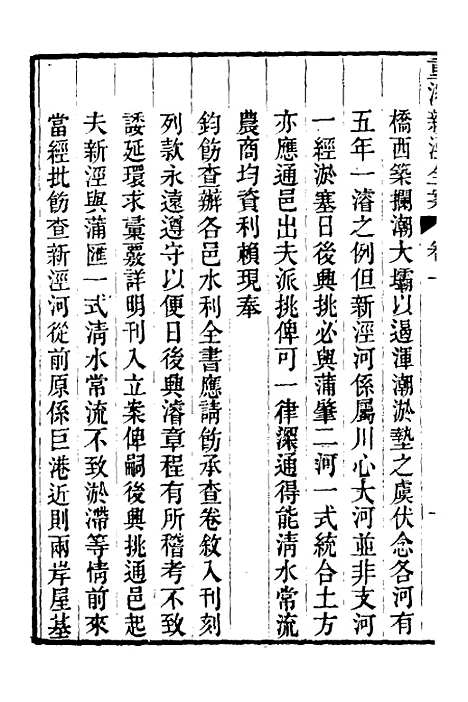 重濬新涇全案 卷一
橋西築攔潮大壩以遏渾潮淤墊之虞伏念各河有
五年一濬之例但新涇河係屬川心大河並非支河
一經淤塞日後興挑必與蒲肇二河一式統合土方
亦應通邑出夫派挑俾可一律深通得能清水常流
農商均資利賴現奉
鈞飭查辦各邑水利全書應請飭承查卷敘入刊刻
列款永遠遵守以便日後興濬章程有所稽考不致
諉延環求彙覈詳明刊入立案俾嗣後興挑通邑起
夫新涇與蒲匯一式清水常流不致淤滯等情前來
當經批飭查新涇河從前原係巨港近則兩岸屋基